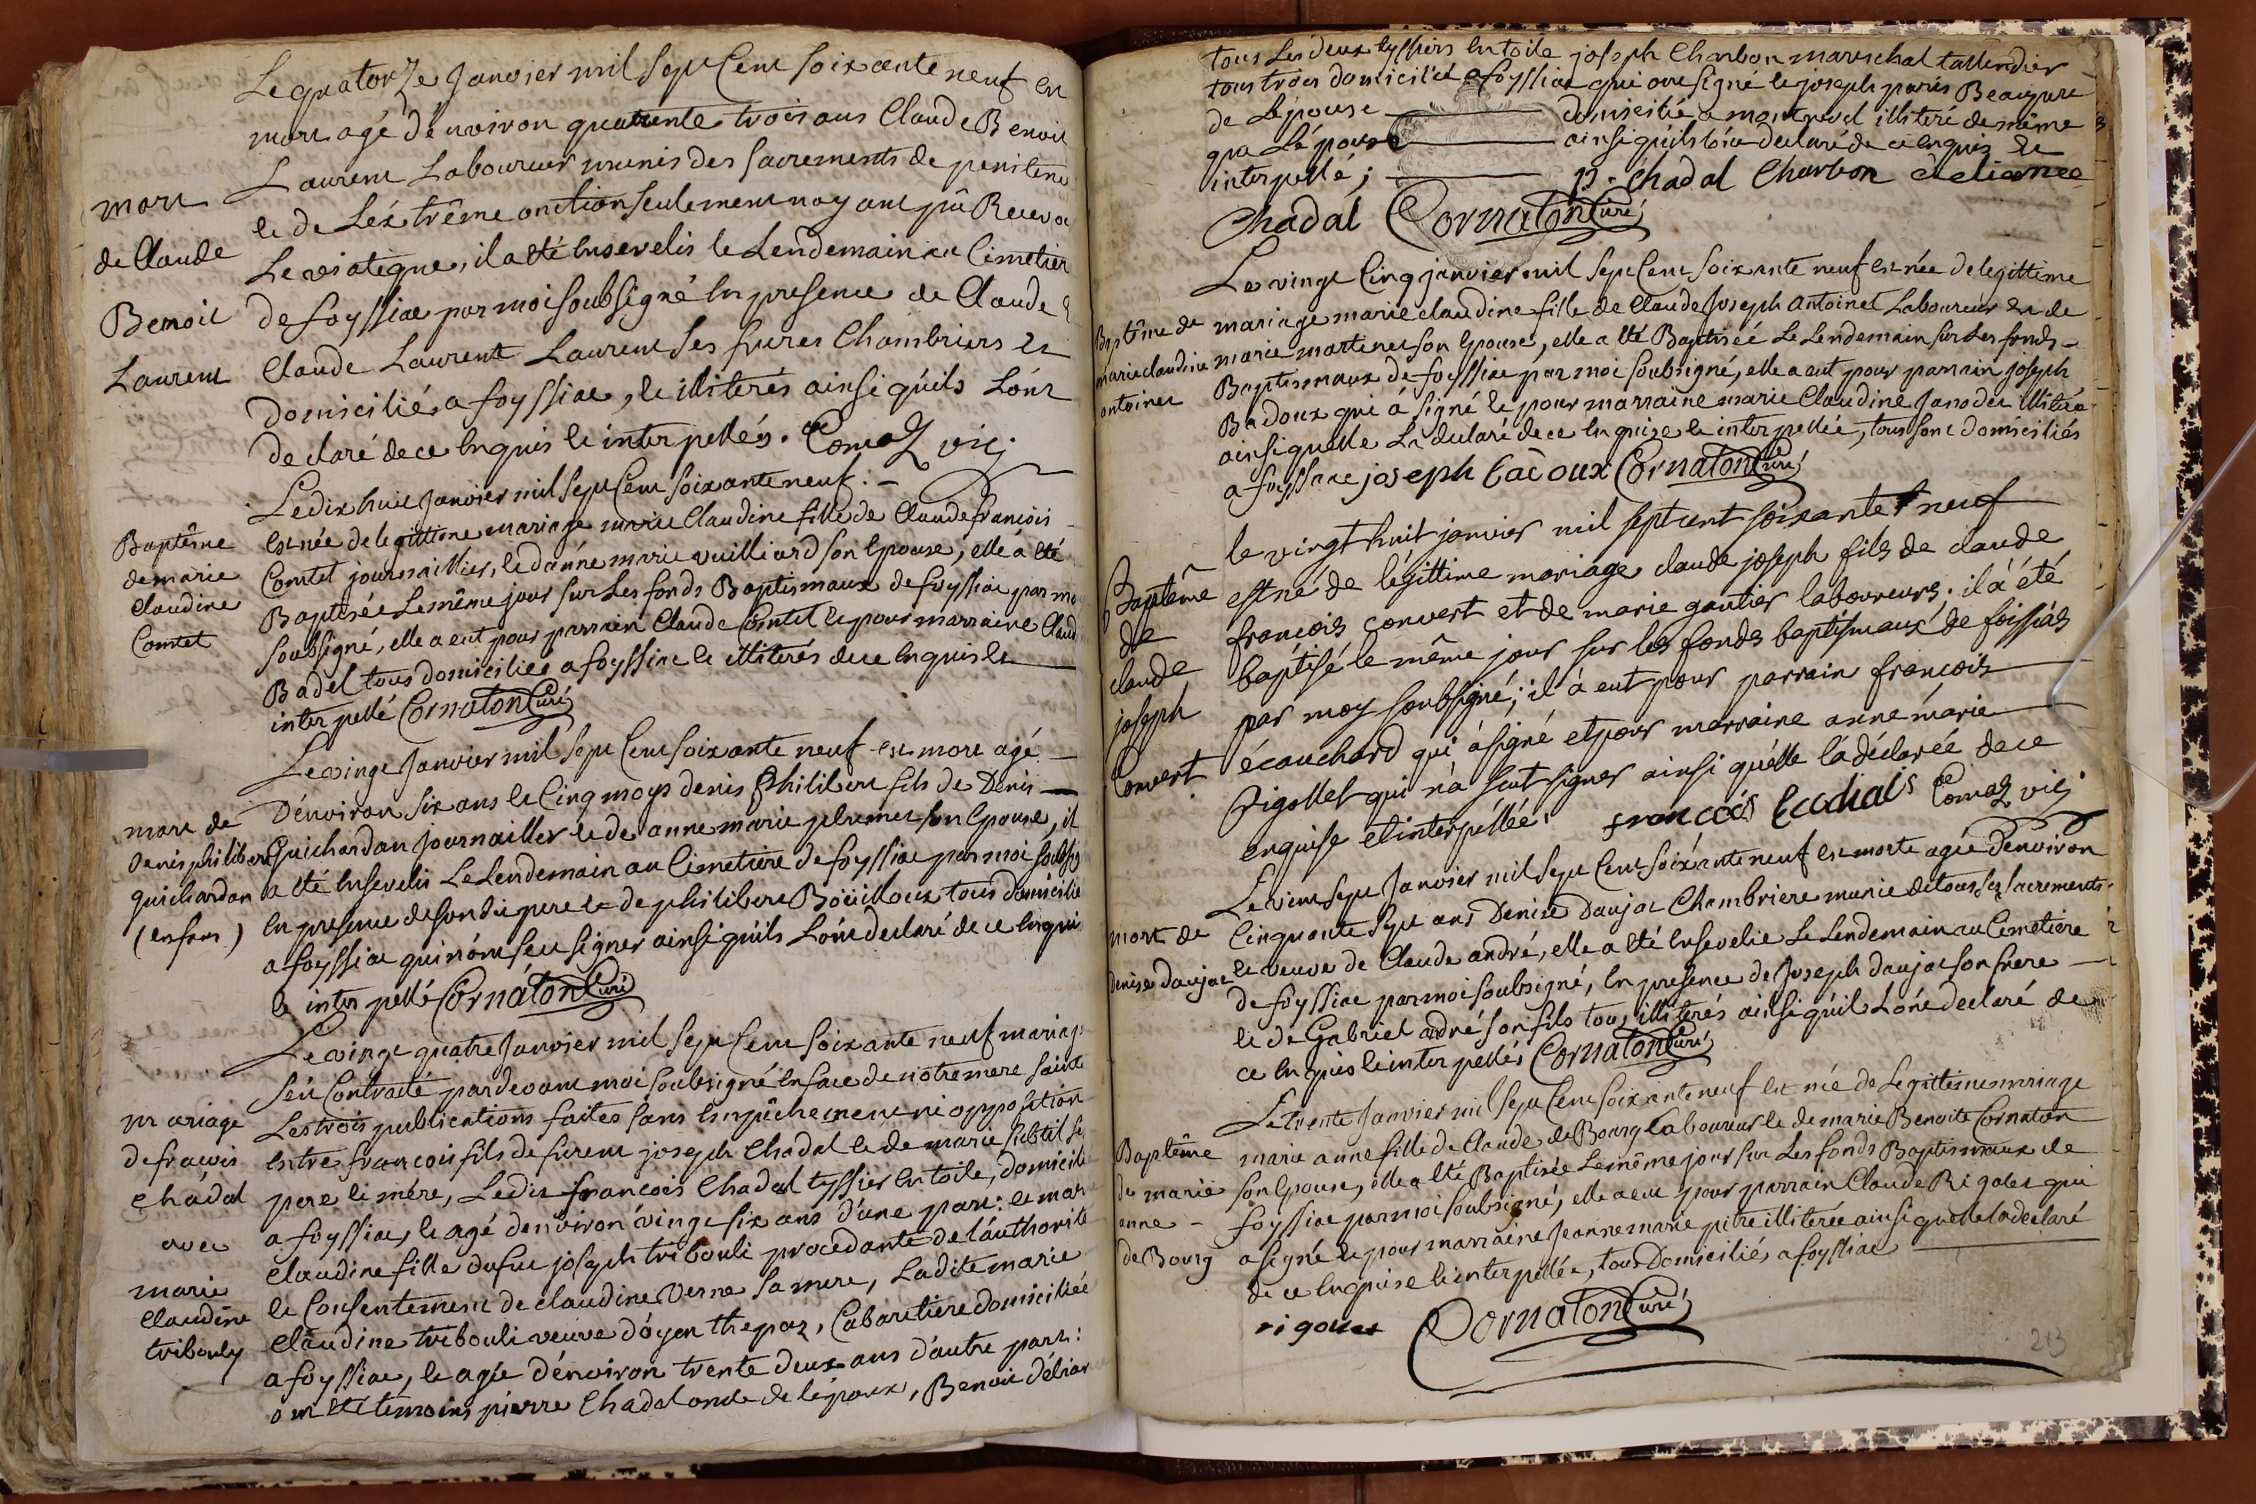 Le quatorze Janvier mil sept Cent soixante neuf est
mort agé d'environ quarente trois ans Claude Benoit
Laurent Laboureur munis des sacrements de penitence
et de L'éxtrême onction seulement nayant pû Recevoir
Le viatique, il a eté Ensevelis le Lendemain au Cimetier
de foyssiac par moi soubsigné En presence de Claude &
Claude Laurent Laurent ses freres Chambriers et
domiciliés a foyssiac, et illiterés ainsi qu'ils L'ont
declaré de ce Enquis et interpellés. Comaz vic;
mort
de Claude
Benoit
Laurent
Le dix huit Janvier mil sept Cent soixante neuf. -
Est née de legittime mariage marie Claudine fille de Claude francois
Comtet journaillier, et d'anne marie vuilliard son Epouse, elle a eté
Baptisée Le même jour sur Les fonds Baptismaux de foyssiac par moy
soubsigné, elle a eut pour parrain Claude Comtet et pour marraine Claud
Badel tous domiciliés a foyssiac et illiterés de ce Enquis et
interpellé Cornaton Curé
Baptême
de marie
Claudine
Comtet
Le vingt Janvier mil sept Cent soixante neuf est mort agé
D'environ six ans et Cinq moys denis philibert fils de Denis
Guichardan Journaillier et de anne marie plumet son Epouse, il
a eté Ensevelis Le Lendemain au Cimetiere de foyssiac par moi soubsig
En presence de son dit pere et de philibert Boüilloux tous domicilié
a foyssiac qui n'ont seu signer ainsi qu'ils L'ont declaré de ce Enquis
et interpellé Cornaton Curé
mort de
Denis philibert
Guichardan
(enfans)
Le vingt quatre Janvier mil sept Cent soixante neuf mariage
s'ét Contracté pardevant moi soubsigné En face de notre mere sainte
Les trois publications faites sans Empêchement ni opposition
Entre francois fils de furent joseph Chadal et de marie subtil ses
pere et mére, Ledit francois Chadal tyssier En toile, domicilié
a foyssiac, et agé d'environ vingt six ans d'une part: et marie
Claudine fille du fut joseph tribouli procedante de l'authorité
et Consentement de Claudine Verne sa mere, Ladite marie
Claudine tribouli veuve d'oyen thepaz, Cabaretiere domiciliée
a foyssiac, et agée d'environ trente deux ans d'autre part:
ont eté temoins pierre Chadal oncle de l'époux, Benoit déliance
mariage
de fracois
Chadal
avec
marie
Claudine
tribouly
tous Les deux tyssiers En toile joseph Charbon mareschal tallendier
tous trois domicilié a foyssiac qui ont signé et joseph paris Beaupere
de L'epouse domicilié a montrevel illiteré de même
que L'épouse ainsi qu'ils l'ont declaré de ce Enquis et
interpellé; p. Chadal Charbon deliance
Chadal Cornaton Curé
Le vingt Cinq janvier mil sept Cent soixante neuf est née de legittime
mariage marie claudine fille de Claude Joseph antoinet Laboureur et de
marie martinet son Epouse, elle a eté Baptisée Le Lendemain sur Les fonds
Baptismaux de foyssiac par moi soubsigné, elle a eut pour parrain joseph
Badoux qui a signé et pour marraine marie Claudine Janodet illiterée
ainsi quelle La declaré de ce Enquise et interpellée, tous sont domiciliés
a foyssiac joseph badoux Cornaton Curé
Baptême de
marie claudine
antoinet
le vingt huit janvier mil sept cent soixante neuf
est né de légittime mariage claude joseph fils de claude
françois convert et de marie gautier laboureurs; il à été
baptisé le même jour sur les fonds baptismaux de foissiás
par moy soubsigné; il à eut pour parrain francois
écauchard qui à signé et pour marraine anne márie
Rigollet qui n'a seut signer ainsi qu'elle l'a déclarée de ce
enquise et interpéllée. Comaz vic;
Baptême
de
claude
joseph
Convert
Le vint sept Janvier mil sept Cent soixante neuf est morte agée d'environ
Cinquante sept ans Denise Daujat Chambriere munie de tous ses sacrements
et veuve de Claude andré, elle a eté Ensevelie Le Lendemain au Cimetiere
de foyssiac par moi soubsigné, En presence de Joseph daujat son frere
et de Gabriel andré son fils tous illiterés ainsi qu'il L'ont declaré de
ce Enquis et interpellés Cornaton Curé
mort de
Denise Daujat
Le trente Janvier mil sept Cent soixante neuf est née de Legittime mariage
marie anne fille de Claude de Bourg Laboureur et de marie Benoite Cornaton
son Epouse, elle a eté Baptisée Le même jour sur Les fonds Baptismaux de
foyssiac par moi soubsigné, elle a eut pour parrain Claude Rigolet qui
a signé et pour marraine Jeanne marie pitre illiterée ainsi quelle la declaré
de ce Enquise et interpellée, tous Domiciliés a foyssiac
rigolet Cornaton Curé
Baptême
de marie
anne -
de Bourg
213